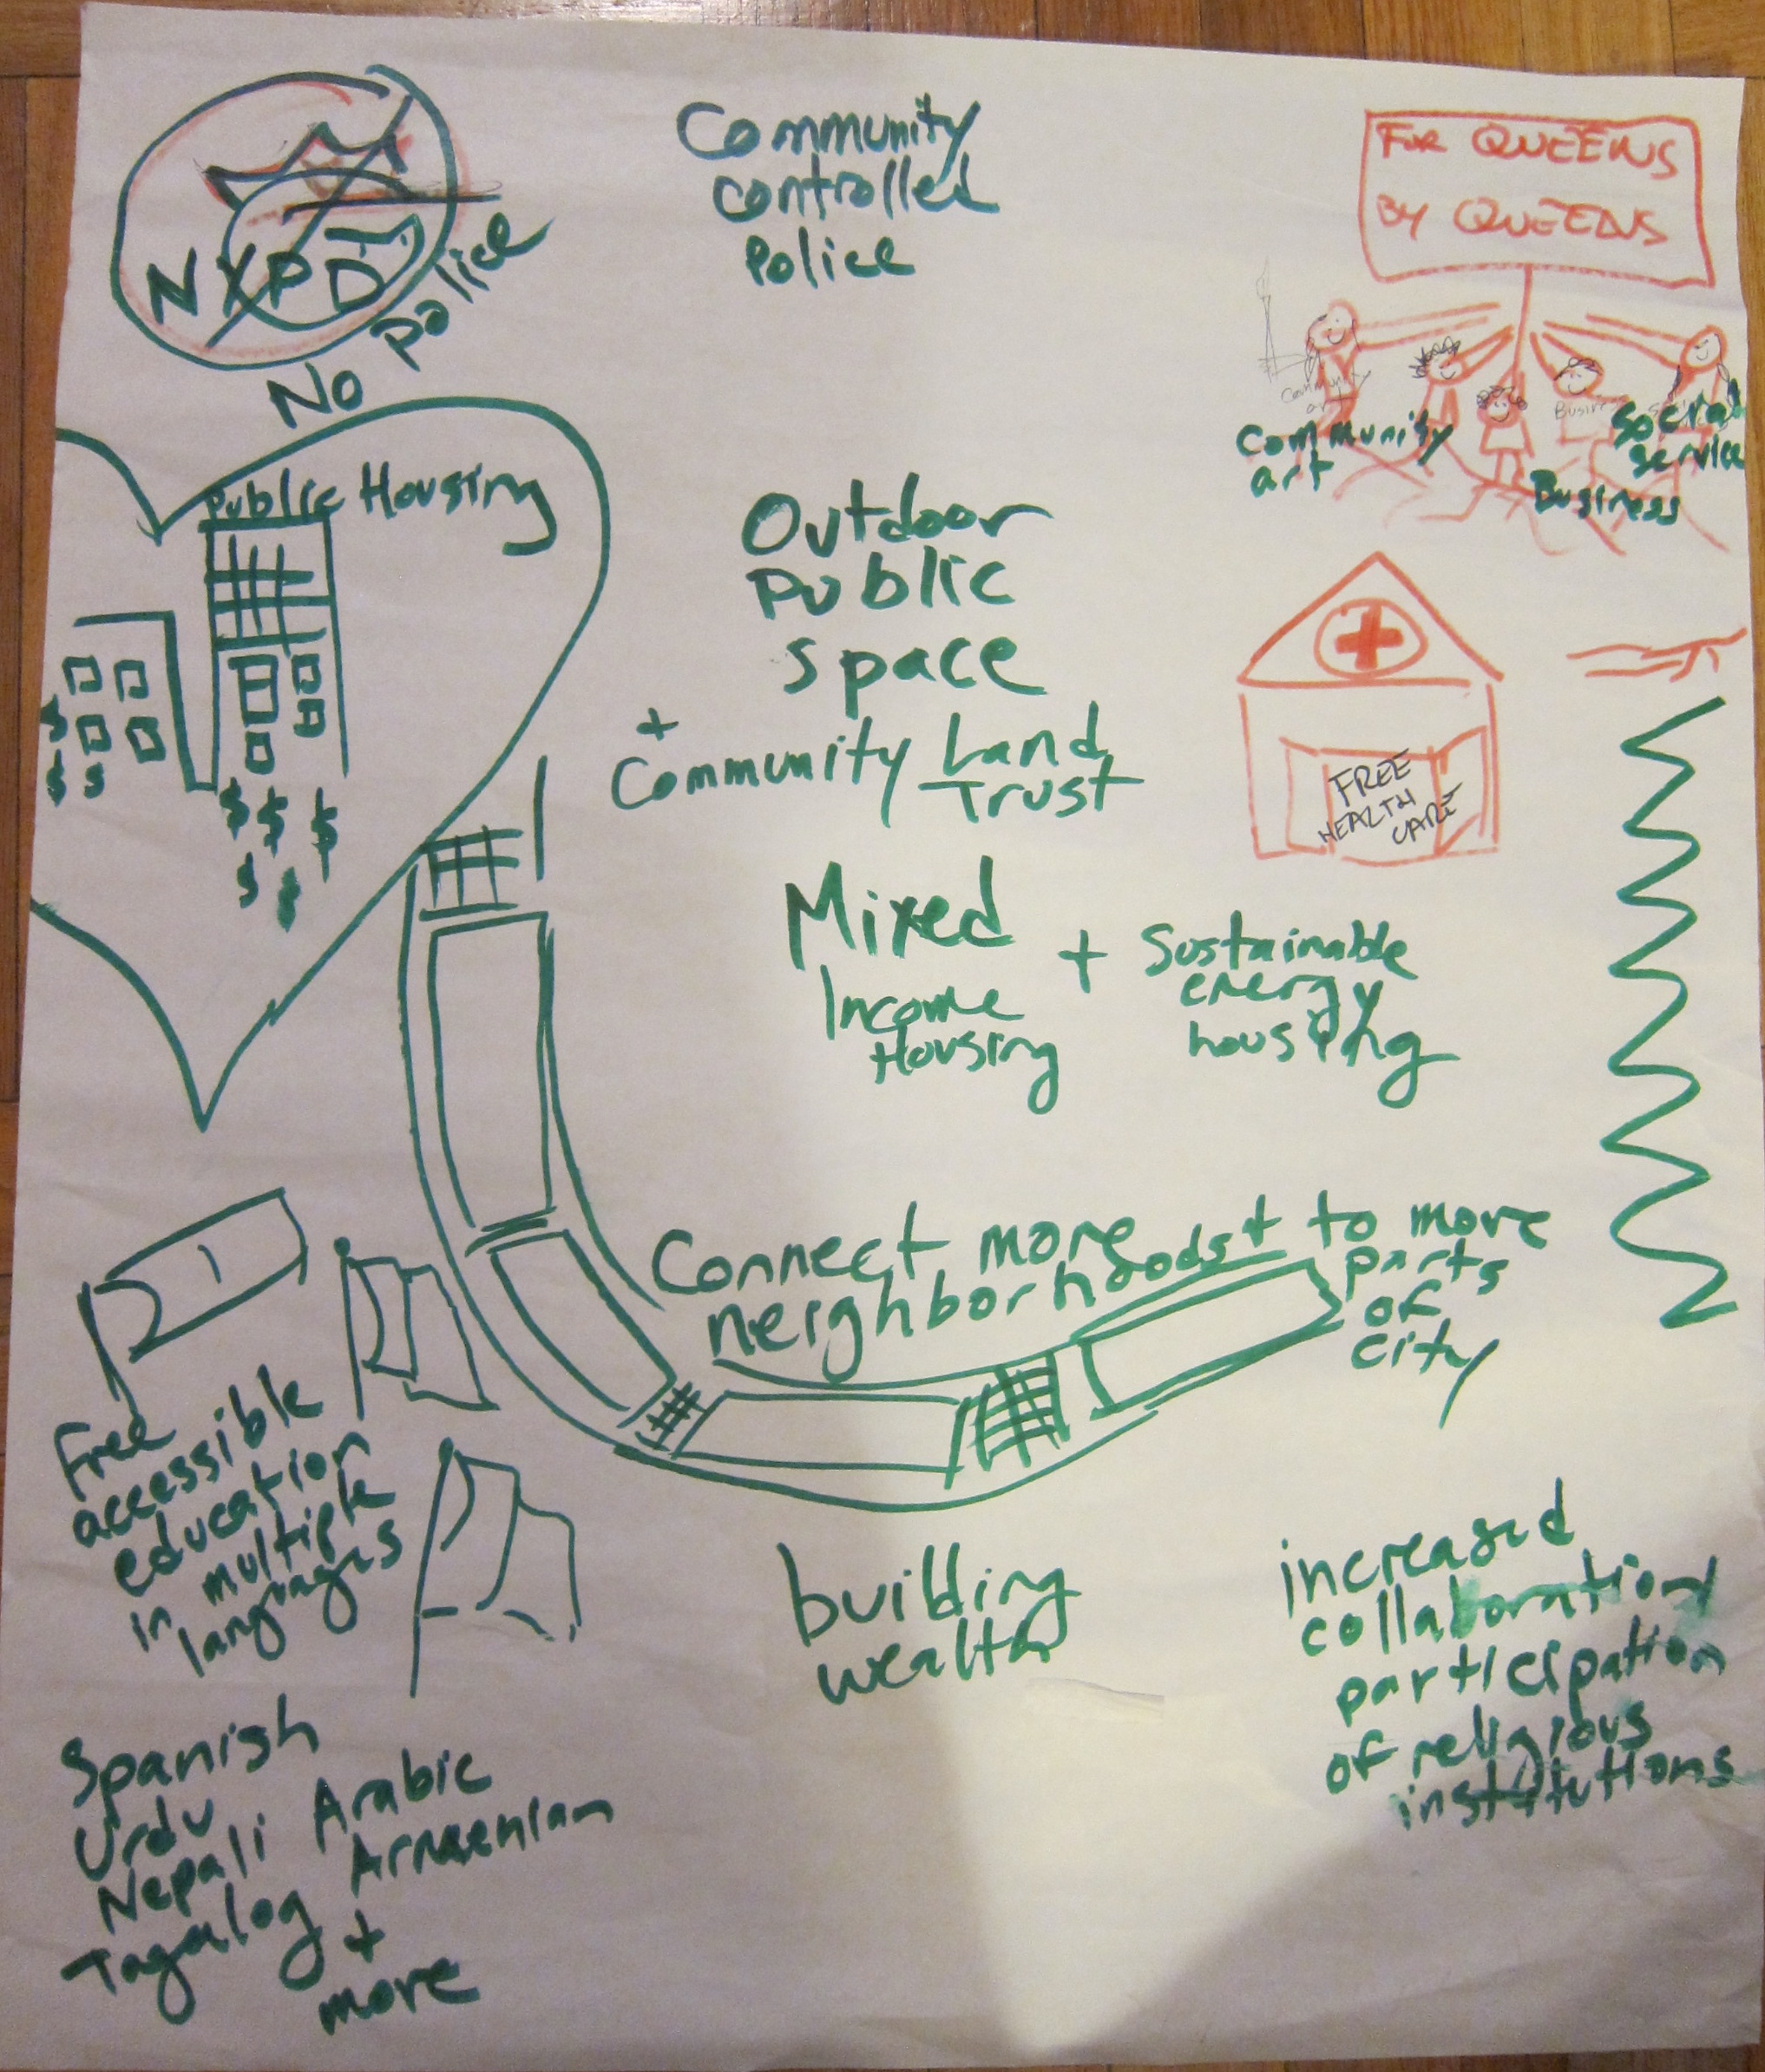 NYPD
No Police
Community
controlled
Police
FOR QUEENS
BY QUEENS
Community
art
Community
art
Social
service
Business
Public Housing
$
$ $
$ $ $
$ $
Outdoor
Public
space
+
Community Land
Trust
FREE
HEALTH
CARE
Mixed
Income
Housing
+ Sustainable
energy
housing
Connect more
neighborhoods + to more
parts
of
city
Free
accessible
education
in multiple
languages
Spanish
Urdu
Nepali Arabic
Tagalog Armenian
+
more
building
wealth
increased
collaboration/
participation
of religious
institutions